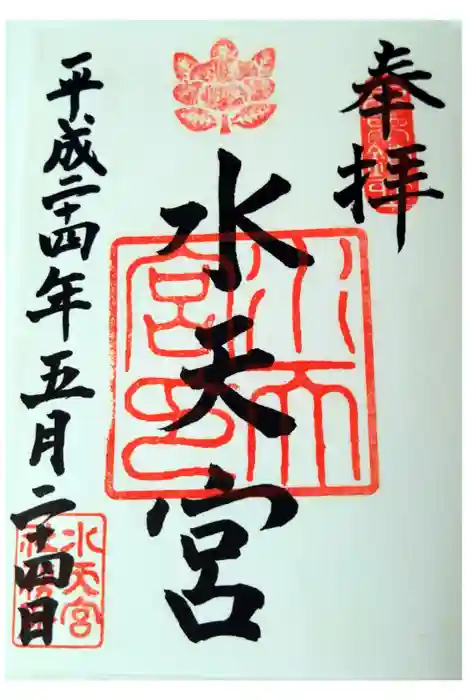 奉拝
水天宮
平成二十四年五月二十四日
水天宮